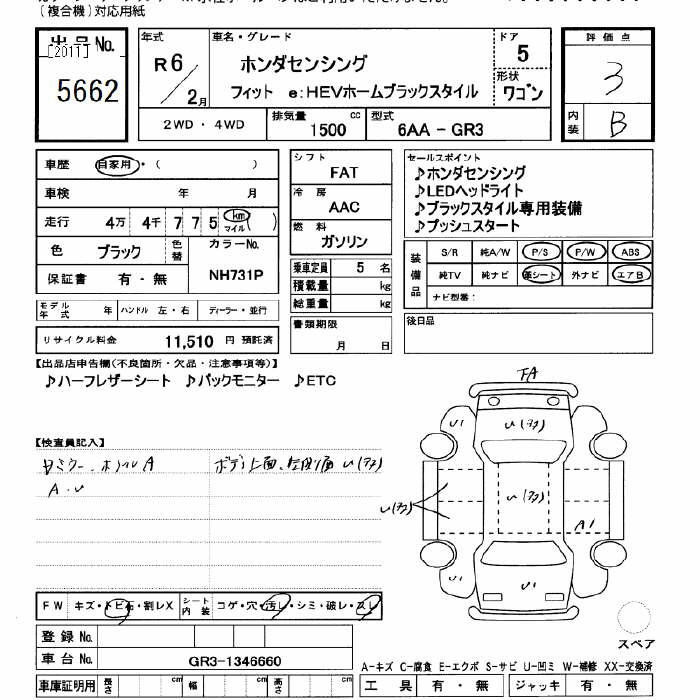 (複合機)対応用紙
出品No.
[2011]
5662
年式
R6/2月
車名・グレード
ホンダセンシング
フィット e:HEVホームブラックスタイル
ドア
5
形状
ワゴン
評価点
3
内装
B
2WD・4WD
排気量 1500 cc
型式 6AA-GR3
車歴 自家用・( )
車検 年 月
走行 4万 4千 7 7 5 km マイル( )
色 ブラック 色替 カラーNo. NH731P
保証書 有・無
モデル年式 年 ハンドル 左・右 ディーラー・並行
リサイクル料金 11,510 円 預託済
シフト
FAT
冷房
AAC
燃料
ガソリン
乗車定員 5 名
積載量 kg
総重量 kg
書類期限
月 日
セールスポイント
♪ホンダセンシング
♪LEDヘッドライト
♪ブラックスタイル専用装備
♪プッシュスタート
装備品
S/R 純A/W P/S P/W ABS
純TV 純ナビ 革シート 外ナビ エアB
ナビ型番:
後日品
【出品店申告欄(不良箇所・欠品・注意事項等)】
♪ハーフレザーシート ♪バックモニター ♪ETC
【検査員記入】
A・U
FA
U1
U(多)
U(多)
U(多)
A1
U1
U1
FW キズ・トビ石・割レX シート内装 コゲ・穴・汚レ・シミ・破レ・スレ
登録No.
車台No. GR3-1346660
スペア
A-キズ C-腐食 E-エクボ S-サビ U-凹ミ W-補修 XX-交換済
車庫証明用 長さ cm 幅 cm 高さ cm
工具 有・無 ジャッキ 有・無